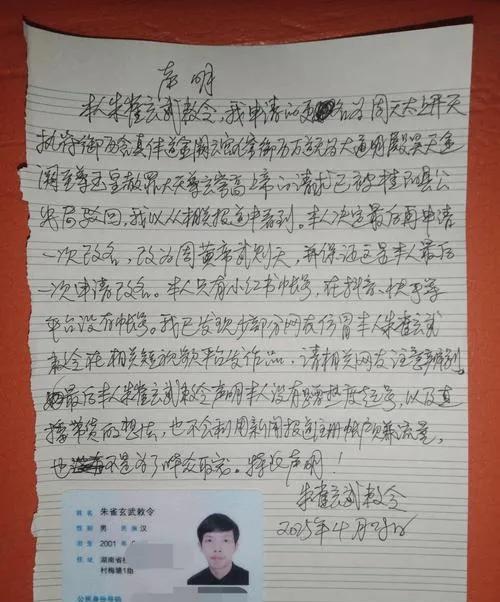 声明
本人朱雀玄武敕令,我申请的更名为周天太上开天
执符御历含真体道金阙云宫九穹御历万道无为大道明殿昊天金
阙至尊玉皇赦罪大天尊玄穹高上帝的请求已被桂阳县公
安局驳回,我以从相关报道中看到。本人决定最后再申请
一次改名,改为周黄帝武则天,并保证这是本人最后
一次申请改名。本人只有小红书帐号,在抖音、快手等
平台没有帐号。我已发现少部分网友仿冒本人朱雀玄武
敕令在相关短视频平台发作品,请相关网友注意辨别
最后本人朱雀玄武敕令声明本人没有蹭热度起号,以及直
播带货的想法,也不会利用新闻报道注册帐户赚流量,
也不是为了哗众取宠。特此声明!
朱雀玄武敕令
2025年4月
姓名 朱雀玄武敕令
性别 男 民族 汉
出生 2001
住址 湖南省
村梅塘1组
公民身份号码